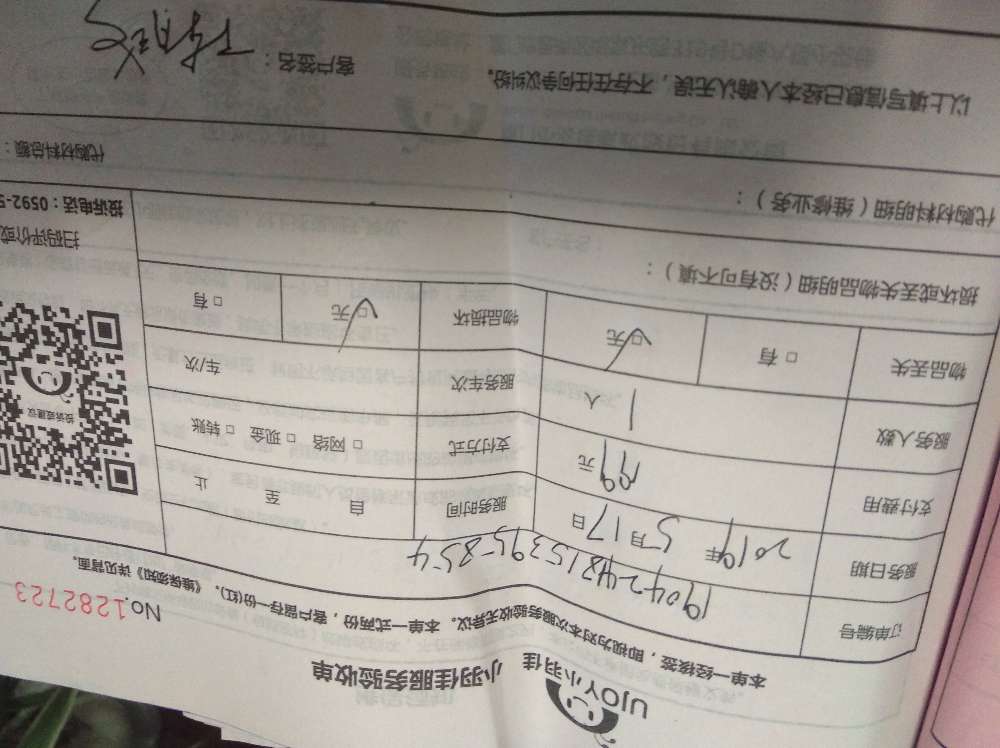 UJOY小羽佳
小羽佳服务验收单
No.1282723
本单一经接签，即视为对本次服务验收无异议。本单一式两份，客户留存一份(红)。《维保须知》详见背面。
订单编号 190424815395854
服务日期 2019年5月17日 服务时间 自 至 止
支付费用 199元 支付方式 □ 网络 □ 现金 □ 转账
服务人数 1人 服务车次 车/次
物品丢失 □ 有 □ 无 物品损坏 □ 无 □ 有
损坏或丢失物品明细（没有可不填）：
投诉或建议
扫码评价或
投诉电话：0592-5
代购材料明细（维修业务）：
代购材料总额：
以上填写信息已经本人确认无误，不存在任何争议纠纷。
客户签名：